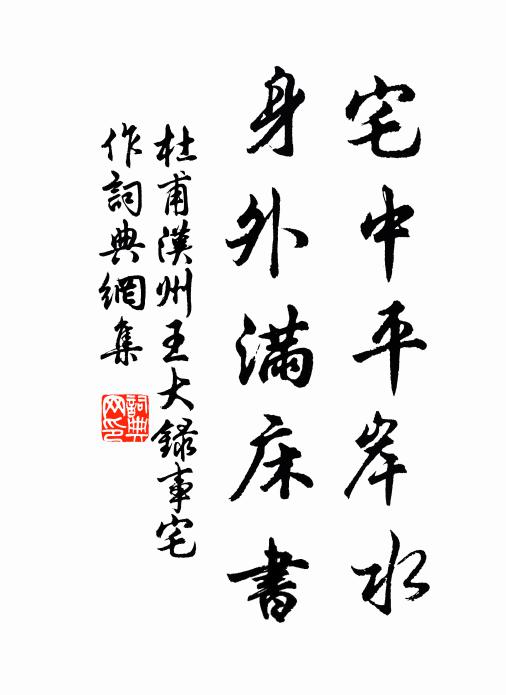 宅中平岸水
身外滿床書
杜甫漢州王大錄事宅
作詞典網集
詞典網印